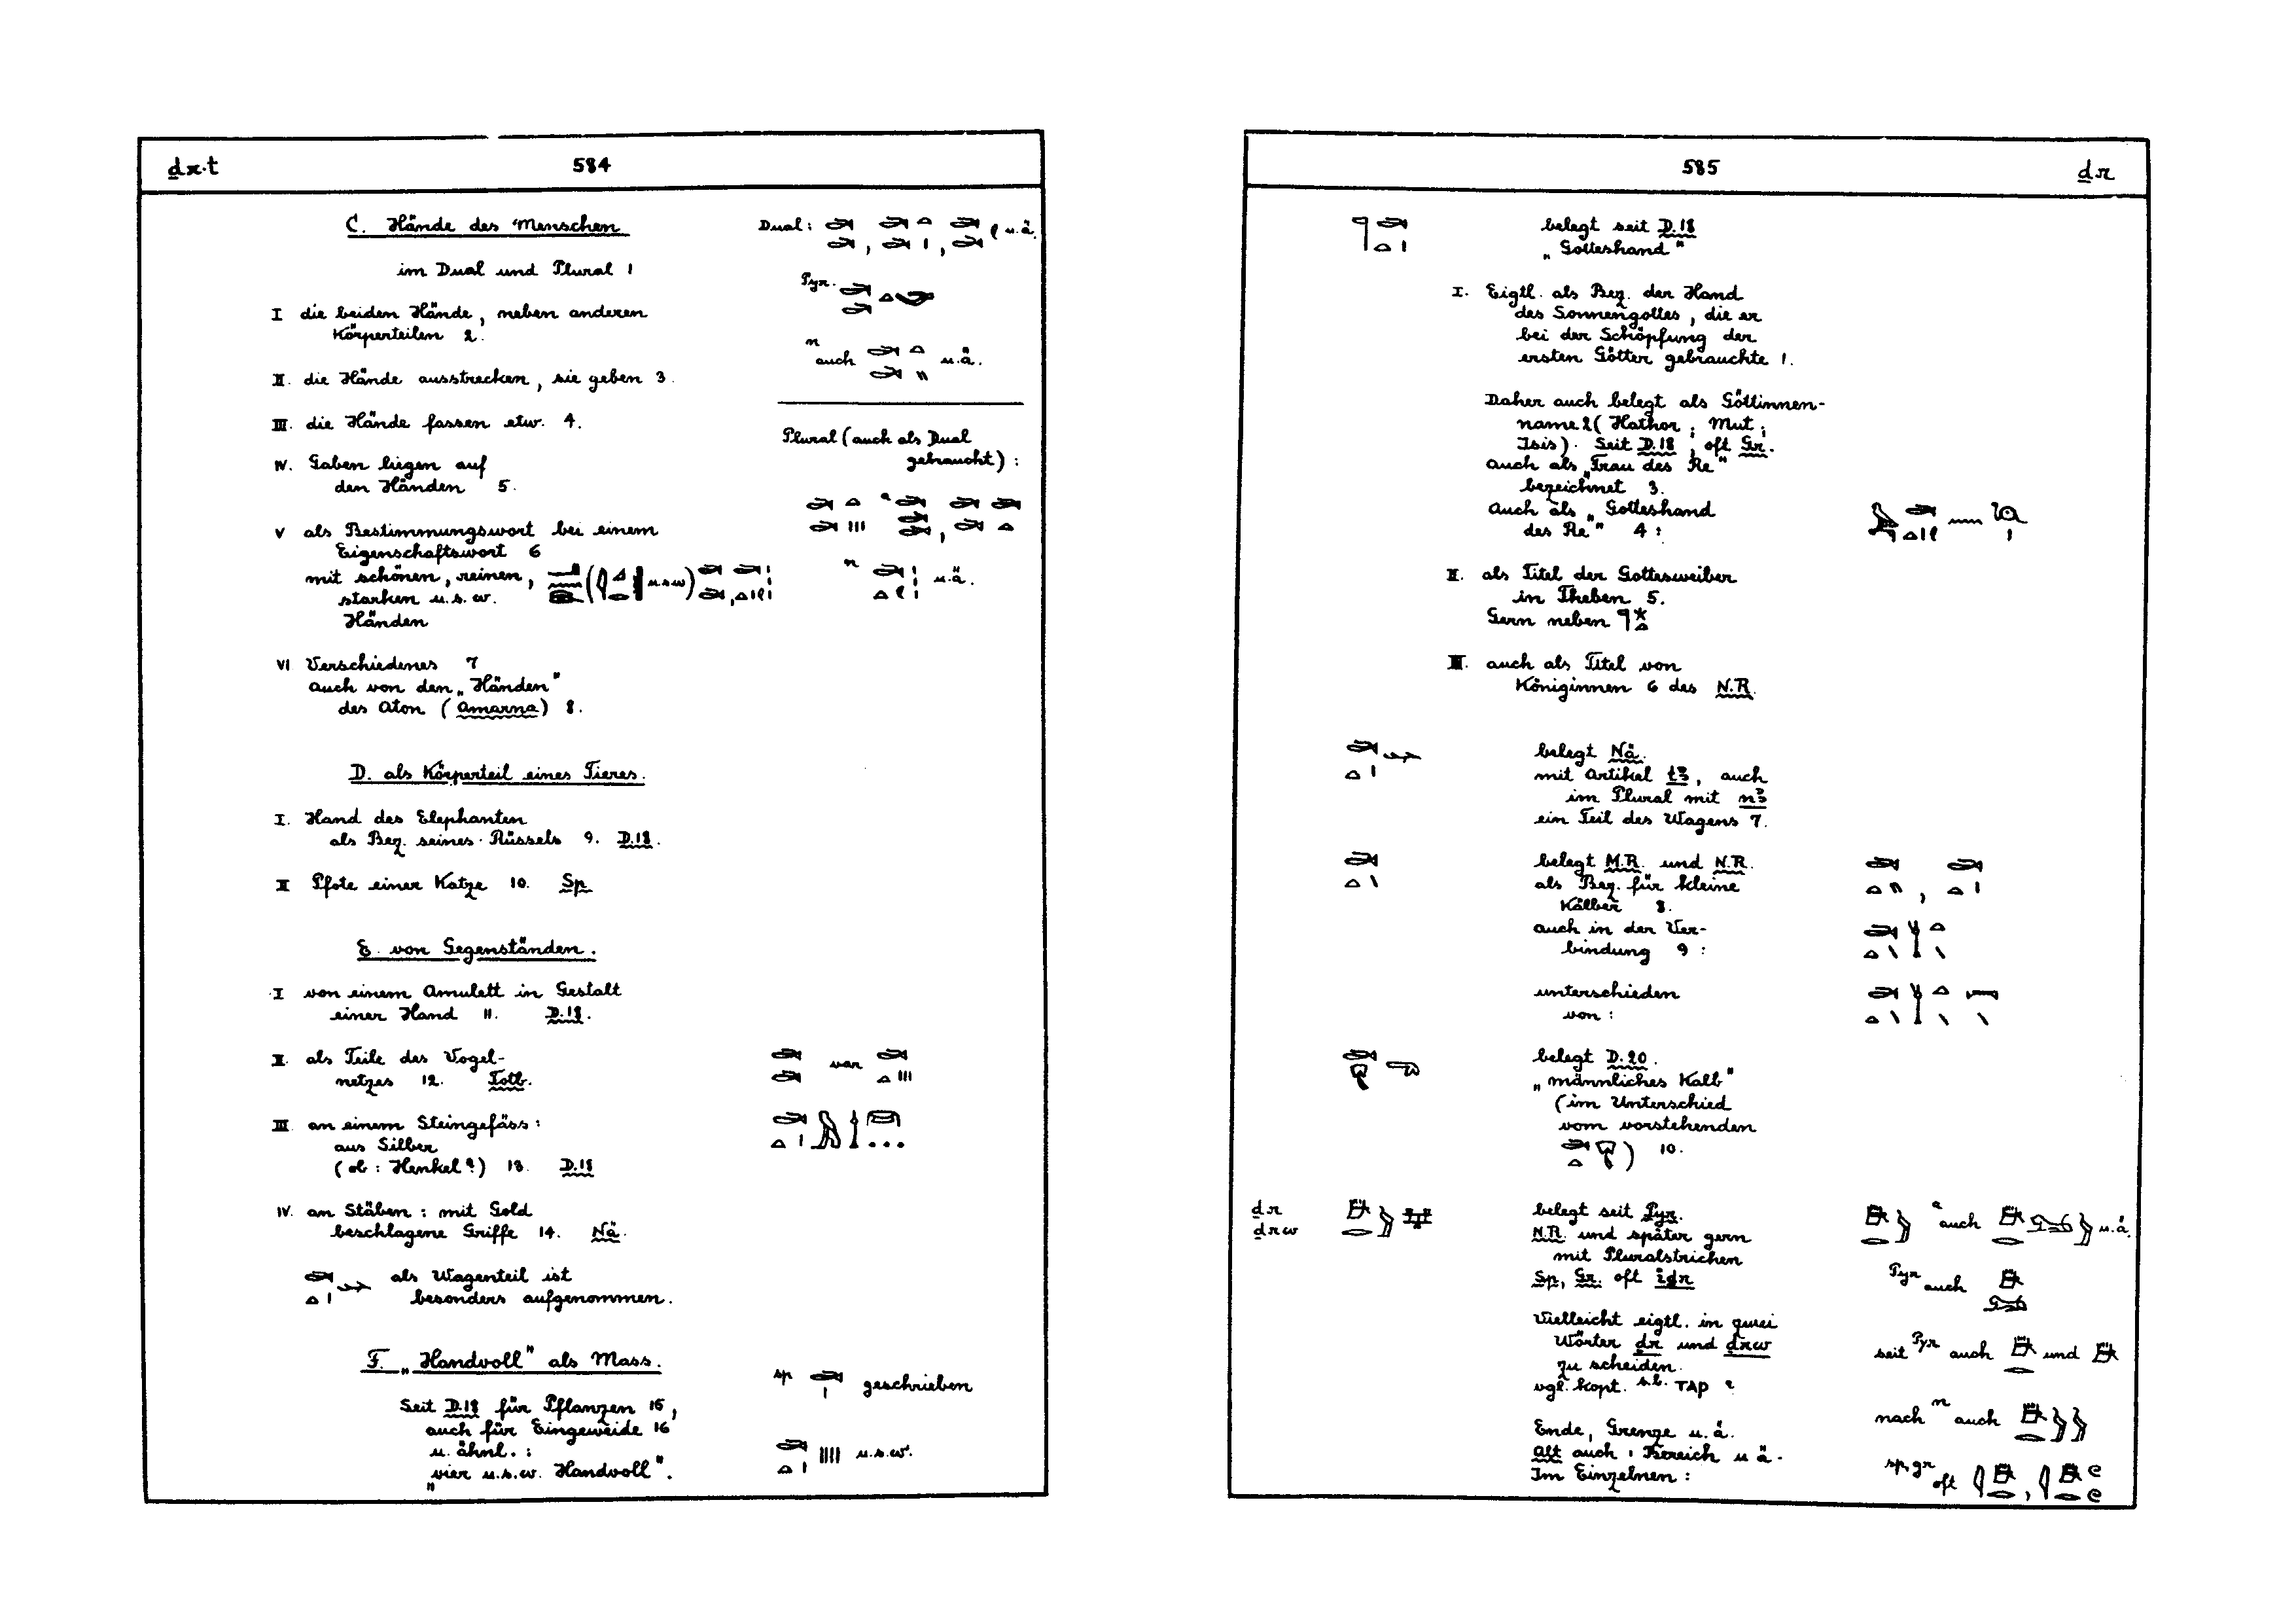 ḏr·t
584
C. Hände des Menschen
im Dual und Plural 1
I die beiden Hände, neben anderen
Körperteilen 2.
II. die Hände ausstrecken, sie geben 3.
III. die Hände fassen etw. 4.
IV. Gaben liegen auf
den Händen 5.
V als Bestimmungswort bei einem
Eigenschaftswort 6
mit schönen, reinen, ( u.s.w)
starken u.s.w.
Händen
VI Verschiedenes 7
auch von den „Händen"
des Aton (Amarna) 8.
D. als Körperteil eines Tieres.
I. Hand des Elephanten
als Bez. seines Rüssels 9. D.18.
II Pfote einer Katze 10. Sp
E. von Gegenständen.
I von einem Amulett in Gestalt
einer Hand 11. D.18.
II. als Teile des Vogel-
netzes 12. Totb.
III an einem Steingefäss:
aus Silber
(ob: Henkel?) 13. D.18
IV. an Stäben: mit Gold
beschlagene Griffe 14. Nä.
als Wagenteil ist
besonders aufgenommen.
F. „Handvoll" als Mass.
Seit D.18 für Pflanzen 15,
auch für Eingeweide 16
u. ähnl.:
„vier u.s.w. Handvoll".
Dual: , , u.ä.
Pyr.
n auch u.ä.
Plural (auch als Dual
gebraucht):
n u.ä.
var
sp geschrieben
u.s.w.
585
ḏr
belegt seit D.18
„Gotteshand"
I. Eigtl. als Bez. der Hand
des Sonnengottes, die er
bei der Schöpfung der
ersten Götter gebrauchte 1.
Daher auch belegt als Göttinnen-
name 2 (Hathor; Mut;
Isis). Seit D.18, oft Gr.
auch als „Frau des Re"
bezeichnet 3.
Auch als „Gotteshand
des Re" 4:
II. als Titel der Gottesweiber
in Theben 5.
Gern neben
III. auch als Titel von
Königinnen 6 des N.R.
belegt Nä.
mit Artikel tꜣ, auch
im Plural mit nꜣ
ein Teil des Wagens 7.
belegt M.R. und N.R.
als Bez. für kleine
Kälber 8.
auch in der Ver-
bindung 9:
unterschieden
von:
belegt D.20.
„männliches Kalb"
(im Unterschied
vom vorstehenden
) 10.
ḏr
ḏrw
belegt seit Pyr.
N.R. und später gern
mit Pluralstrichen
Sp, Gr. oft iḏr
Vielleicht eigtl. in zwei
Wörter ḏr und ḏrw
zu scheiden.
vgl. kopt. s.b. ТАР ?
Ende, Grenze u.ä.
Alt auch: Bereich u ä.
Im Einzelnen:
a auch u.ä.
Pyr auch
seit Pyr auch und
nach n auch
sp, gr oft ,